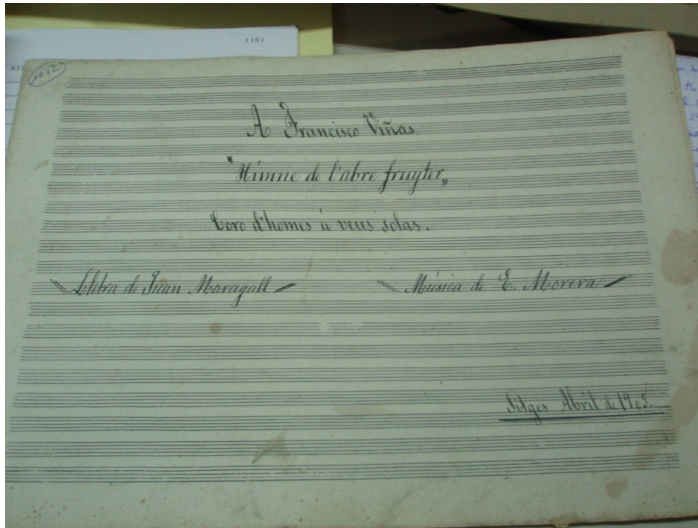 1012
A Francisco Viñas.
"Himne de l'abre fruyter"
Coro d'homes à veus solas.
Lletra de Juan Maragall
Música de E. Morera
Sitges Abril de 1905.